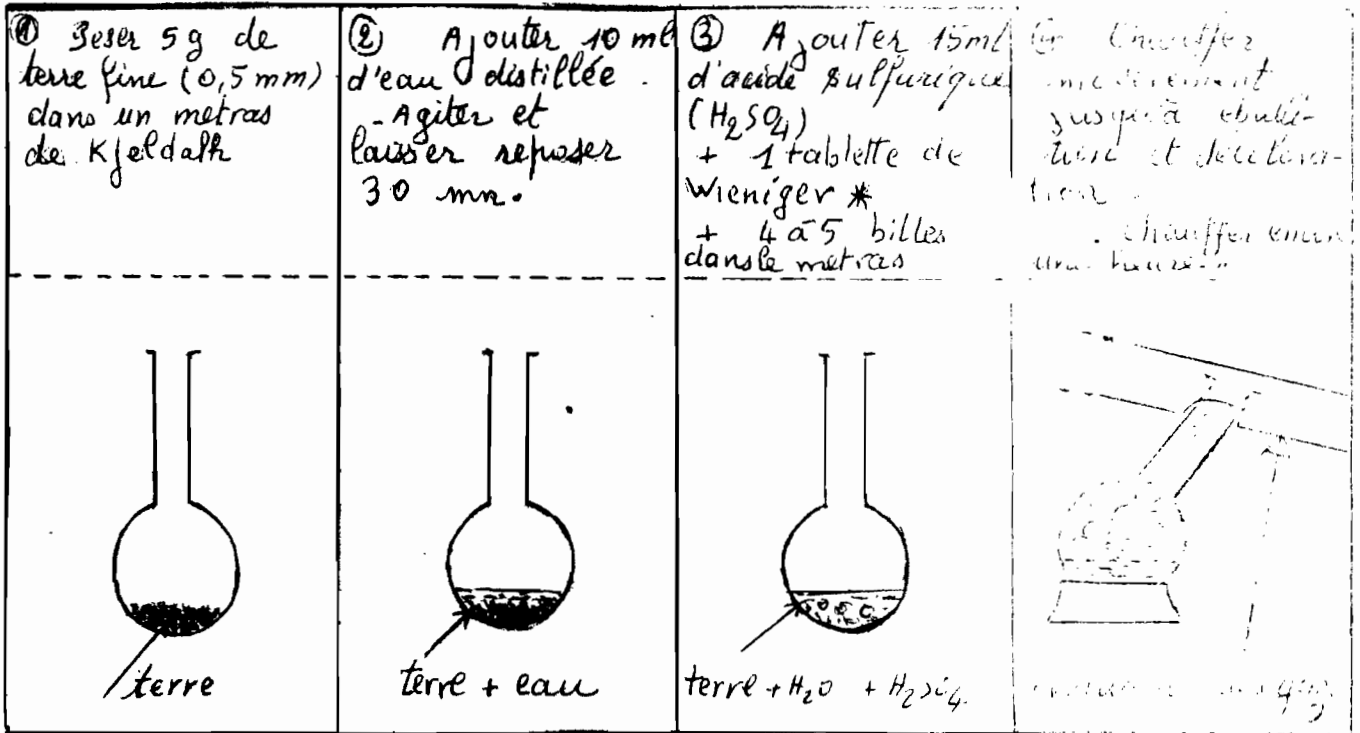 ① Peser 5 g de
terre fine (0,5 mm)
dans un metras
de Kjeldalh
terre
② Ajouter 10 ml
d'eau distillée.
- Agiter et
laisser reposer
30 mn.
terre + eau
③ Ajouter 15ml
d'acide sulfurique
(H₂SO₄)
+ 1 tablette de
Wieniger *
+ 4 à 5 billes
dans le metras
terre + H₂O + H₂SO₄
Chauffer
jusqu'à ébulli-
tion et décolora-
tion.
. Chauffer
une heure